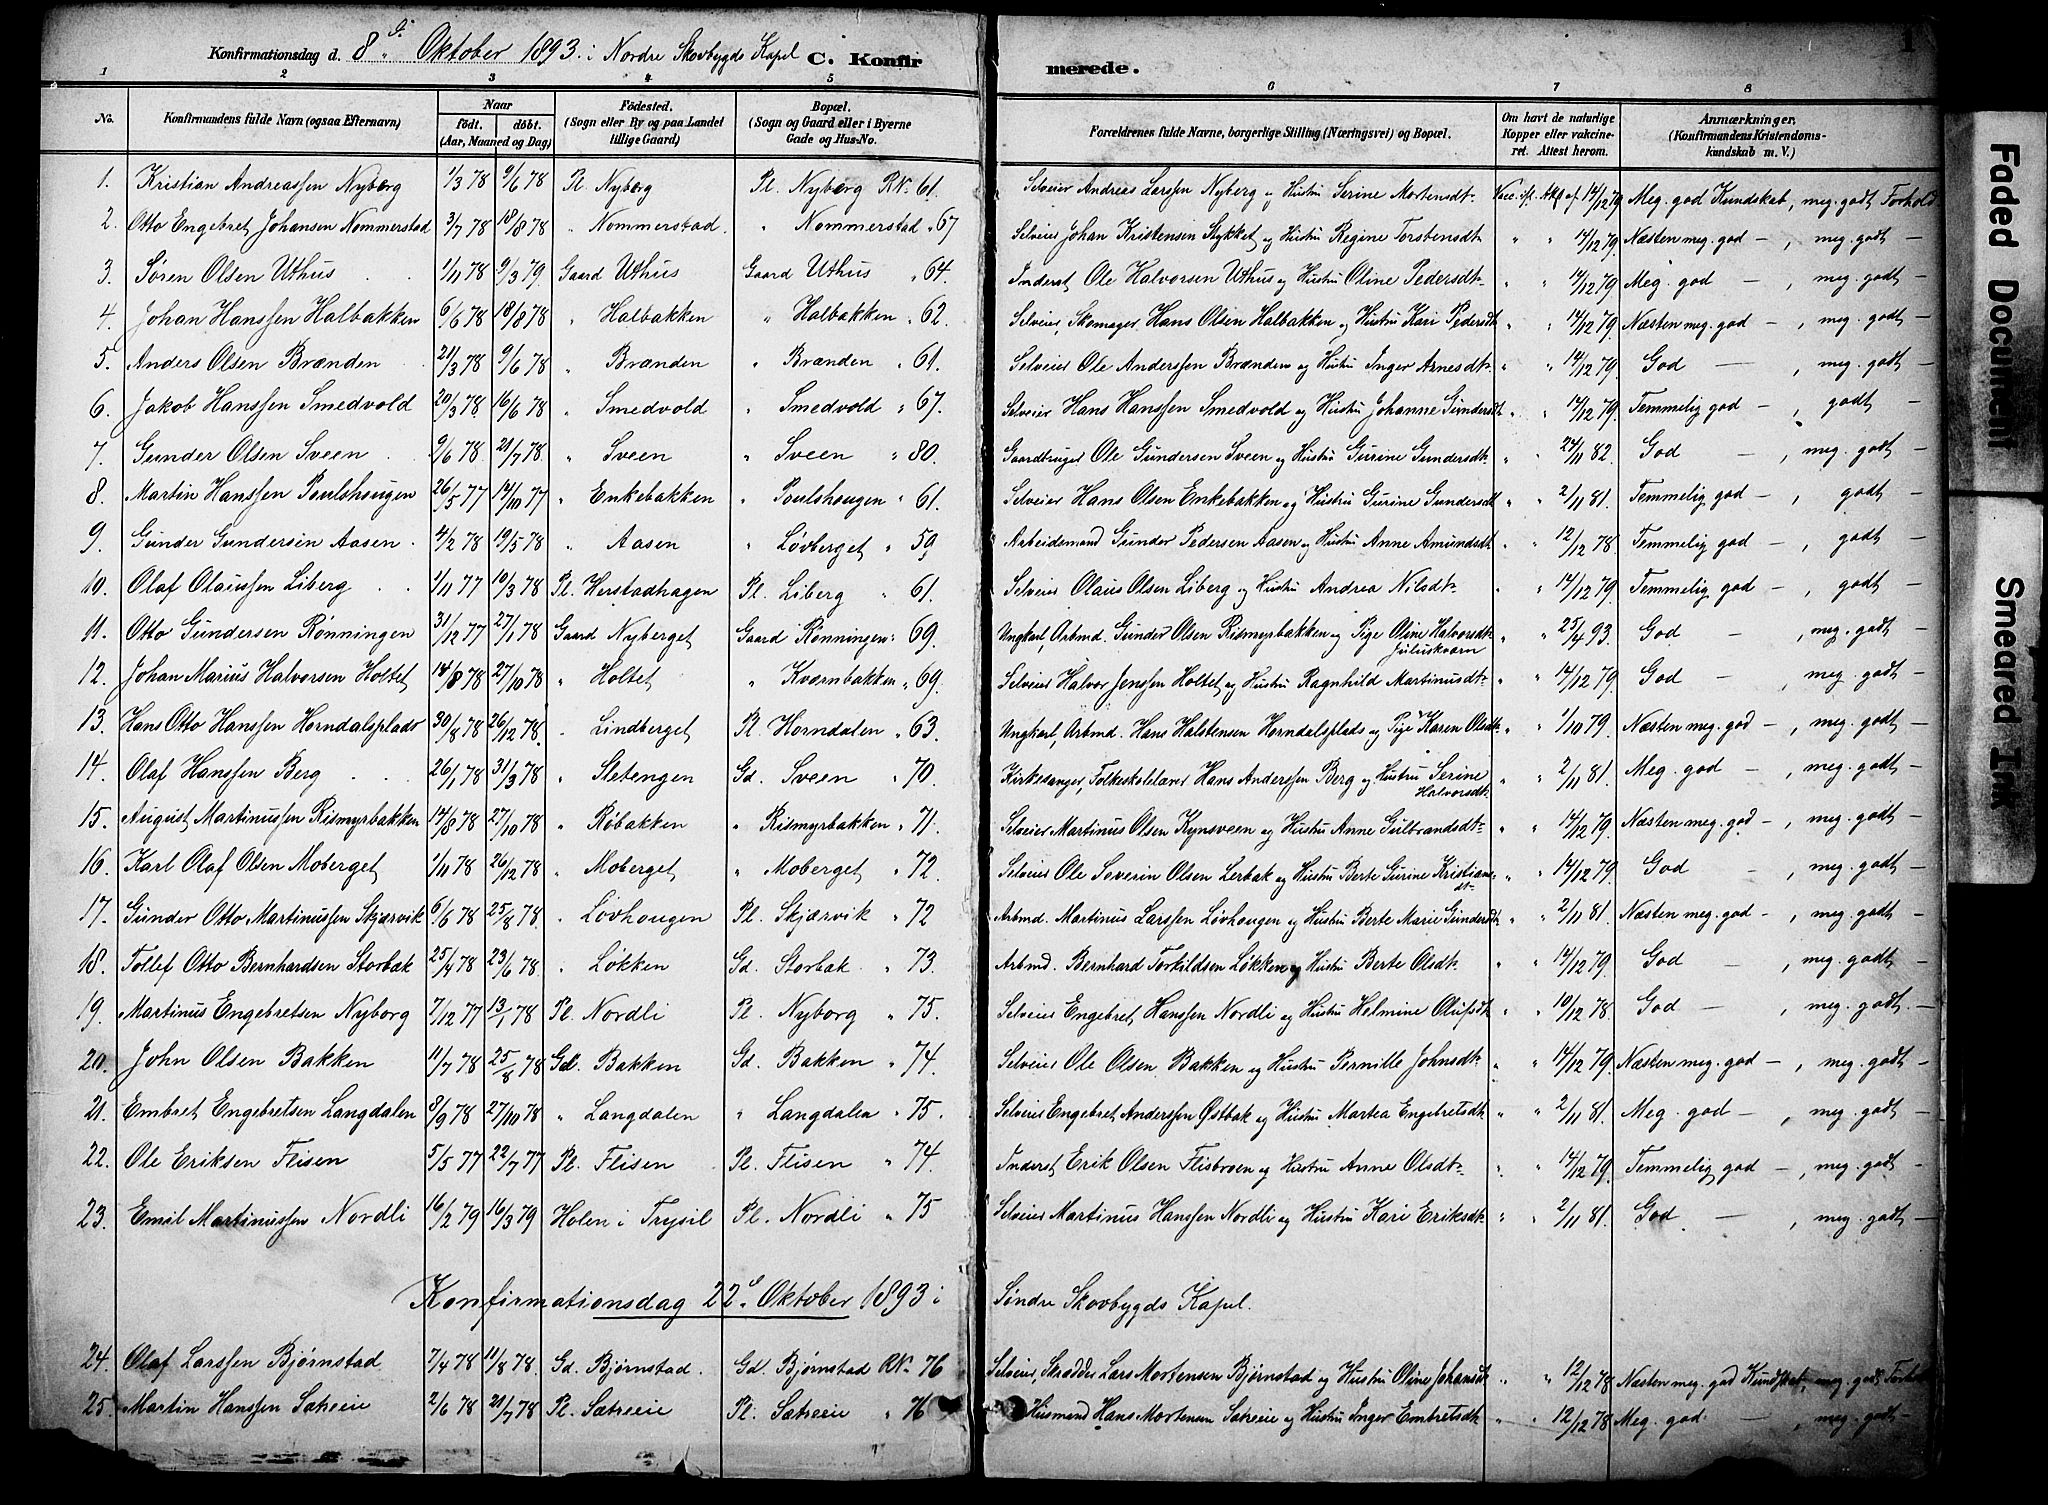 Konfirmationsdag d. 8de Oktober 1893 i Nordre Skovbygds Kapel C. Konfirmerede. 1
1 2 3 4 5 6 7 8
No. Konfirmandens fulde Navn (ogsaa Efternavn) Naar födt. döbt. (Aar, Maaned og Dag) Födested. (Sogn eller By og paa Landet tillige Gaard) Bopæl. (Sogn og Gaard eller i Byerne Gade og Hus-No. Forældrenes fulde Navne, borgerlige Stilling (Næringsvei) og Bopæl. Om havt de naturlige Kopper eller vakcineret. Attest herom. Anmærkninger. (Konfirmandens Kristendomskundskab m. V.)
1. Kristian Andreassen Nyborg 1/3 78 9/6 78 Pl. Nyborg Pl. Nyborg RN. 61. Selveier Andreas Larssen Nyberg og Hustru Serine Mortensdt. Vacc. ifl. Att. af 14/12 79 Meg. god Kundskab, meg. godt Forhold
2. Otto Engebret Johansen Nommerstad 3/7 78 18/8 78 " Nommerstad " Nommerstad " 67 Selveier Johan Kristensen Stykket og Hustru Regine Torstensdt. " " 14/12 79. Næsten meg. god —, meg. godt —
3. Søren Olsen Uthus 1/11 78 9/3 79 Gaard Uthus Gaard Uthus " 64. Inderst Ole Halvorsen Uthus og Hustru Oline Pedersdt. " " 14/12 79 Meg. god —, meg. godt —
4. Johan Hanssen Halbakken 6/6 78 18/8 78 " Halbakken " Halbakken " 62. Selveier, Skomager Hans Olsen Halbakken og Hustru Kari Pedersdt. " " 14/12 79. Næsten meg. god —, meg. godt —
5. Anders Olsen Brænden 21/3 78 9/6 78 " Brænden " Brænden " 61. Selveier Ole Anderssen Brænden og Hustru Inger Arnesdt. " " 14/12 79. God —, meg. godt —
6. Jakob Hanssen Smedvold 20/3 78 16/6 78 " Smedvold " Smedvold " 67. Selveier Hans Hanssen Smedvold og Hustru Johanne Gundersdt. " " 14/12 79. Temmelig god —, godt —
7. Gunder Olsen Sveen 9/6 78. 21/7 78. " Sveen " Sveen " 80. Gaardbruger Ole Gundersen Sveen og Hustru Gurine Gundersdt. " " 24/11 82. God —, meg. godt —
8. Martin Hanssen Poulshougen 26/5 77 14/10 77 " Enkebakken " Poulshougen " 61. Selveier Hans Olsen Enkebakken og Hustru Gurine Gundersdt. " " 2/11 81. Temmelig god —, godt —
9. Gunder Gundersen Aasen 4/2 78 19/5 78 " Aasen " Løvberget " 59 Arbeidsmand Gunder Pedersen Aasen og Hustru Anne Amundsdt. " " 12/12 78 Temmelig god —, godt —
10. Olaf Olaussen Liberg 1/11 77 10/3 78 Pl. Herstadhagen Pl. Liberg " 61. Selveier Olaus Olsen Liberg og Hustru Andrea Nilsdt. " " 14/12 79. Temmelig god —, godt —
11. Otto Gundersen Rønningen 31/12 77 27/1 78 Gaard Nyberget Gaard Rønningen " 69. Ungkarl, Arbmd. Gunder Olsen Rismyrbakken og Pige Oline Halvorsdt. Juluskværn " " 25/4 93. God —, meg. godt —
12. Johan Marius Halvorsen Holtet 14/8 78 27/10 78 " Holtet " Kværnbakken " 69. Selveier Halvor Jenssen Holtet og Hustru Ragnhild Martinusdt. " " 14/12 79. God —, meg. godt —
13. Hans Otto Hanssen Horndalsplads 30/8 78 26/12 78. " Lindberget Pl. Horndalen " 63. Ungkarl, Arbmd. Hans Halstensen Horndalsplads og Pige Karen Olsdt. " " 1/10 79. Næsten meg. god —, meg. godt —
14. Olaf Hanssen Berg 26/1 78 31/3 78 " Sletengen Gd. Sveen " 70. Kirkesanger, Folkeskolelærer Hans Anderssen Berg og Hustru Serine Halvorsdt. " " 2/11 81. Meg. god —, meg. godt —
15. August Martinussen Rismyrbakken 14/8 78 27/10 78 " Røbakken " Rismyrbakken " 71. Selveier Martinus Olsen Kynsveen og Hustru Anne Gulbrandsdt. " " 14/12 79. Næsten meg. god —, meg. godt —
16. Karl Olaf Olsen Moberget 1/11 78 26/12 78 " Moberget " Moberget " 72. Selveier Ole Severin Olsen Lerbak og Hustru Berte Gurine Kristiansdt. " " 14/12 79. God —, meg. godt —
17. Gunder Otto Martinussen Skjærvik 6/6 78 25/8 78. " Løvhougen Pl. Skjærvik " 72 Arbmd. Martinus Larssen Løvhougen og Hustru Berte Marie Gundersdt. " " 2/11 81. Næsten meg. god —, meg. godt —
18. Tollef Otto Bernhardsen Storbak 25/4 78 23/6 78. " Løkken Gd. Storbak " 73. Arbmd. Bernhard Torkildsen Løkken og Hustru Berte Olsdt. " " 14/12 79. God —, meg. godt —
19. Martinus Engebretsen Nyborg 7/12 77 13/1 78 Pl. Nordli Pl. Nyborg " 75. Selveier Engebret Hanssen Nordli og Hustru Helmine Olufsdt. " " 10/12 78. God —, meg. godt —
20. John Olsen Bakken 11/7 78 25/8 78 Gd. Bakken Gd. Bakken " 74. Selveier Ole Olsen Bakken og Hustru Pernille Johnsdt. " " 14/12 79. Næsten meg. god —, meg. godt —
21. Embret Engebretsen Langdalen 8/9 78 27/10 78 " Langdalen " Langdalen " 75. Selveier Engebret Anderssen Østbak og Hustru Martea Engebretsdt. " " 2/11 81. Meg. god —, meg. godt —
22. Ole Eriksen Flisen 5/5 77 22/7 77 Pl. Flisen Pl. Flisen " 74. Inderst Erik Olsen Flisbroen og Hustru Anne Olsdt. " " 14/12 79. Temmelig god —, meg. godt —
23. Emil Martinussen Nordli 16/2 79 16/3 79 Holen i Trysil Pl. Nordli " 75 Selveier Martinus Hanssen Nordli og Hustru Kari Eriksdt. " " 2/11 81. God —, meg. godt —
Konfirmationsdag 22de Oktober 1893 i Søndre Skovbygds Kapel.
24. Olaf Larssen Bjørnstad 7/4 78 11/8 78. Gd. Bjørnstad. Gd. Bjørnstad RN. 76 Selveier, Skrædder Lars Mortensen Bjørnstad og Hustru Oline Johansdt. " " 12/12 78 Næsten meg. god Kundskab, meg. godt Forhold
25. Martin Hanssen Sætreeie 2/6 78 21/7 78 Pl. Sætreeie Pl. Sætreeie " 76 Husmand Hans Mortensen Sætreeie og Hustru Inger Embretsdt. " " 12/12 78 Meg. god —, meg. godt —
Faded Document
Smeared Ink